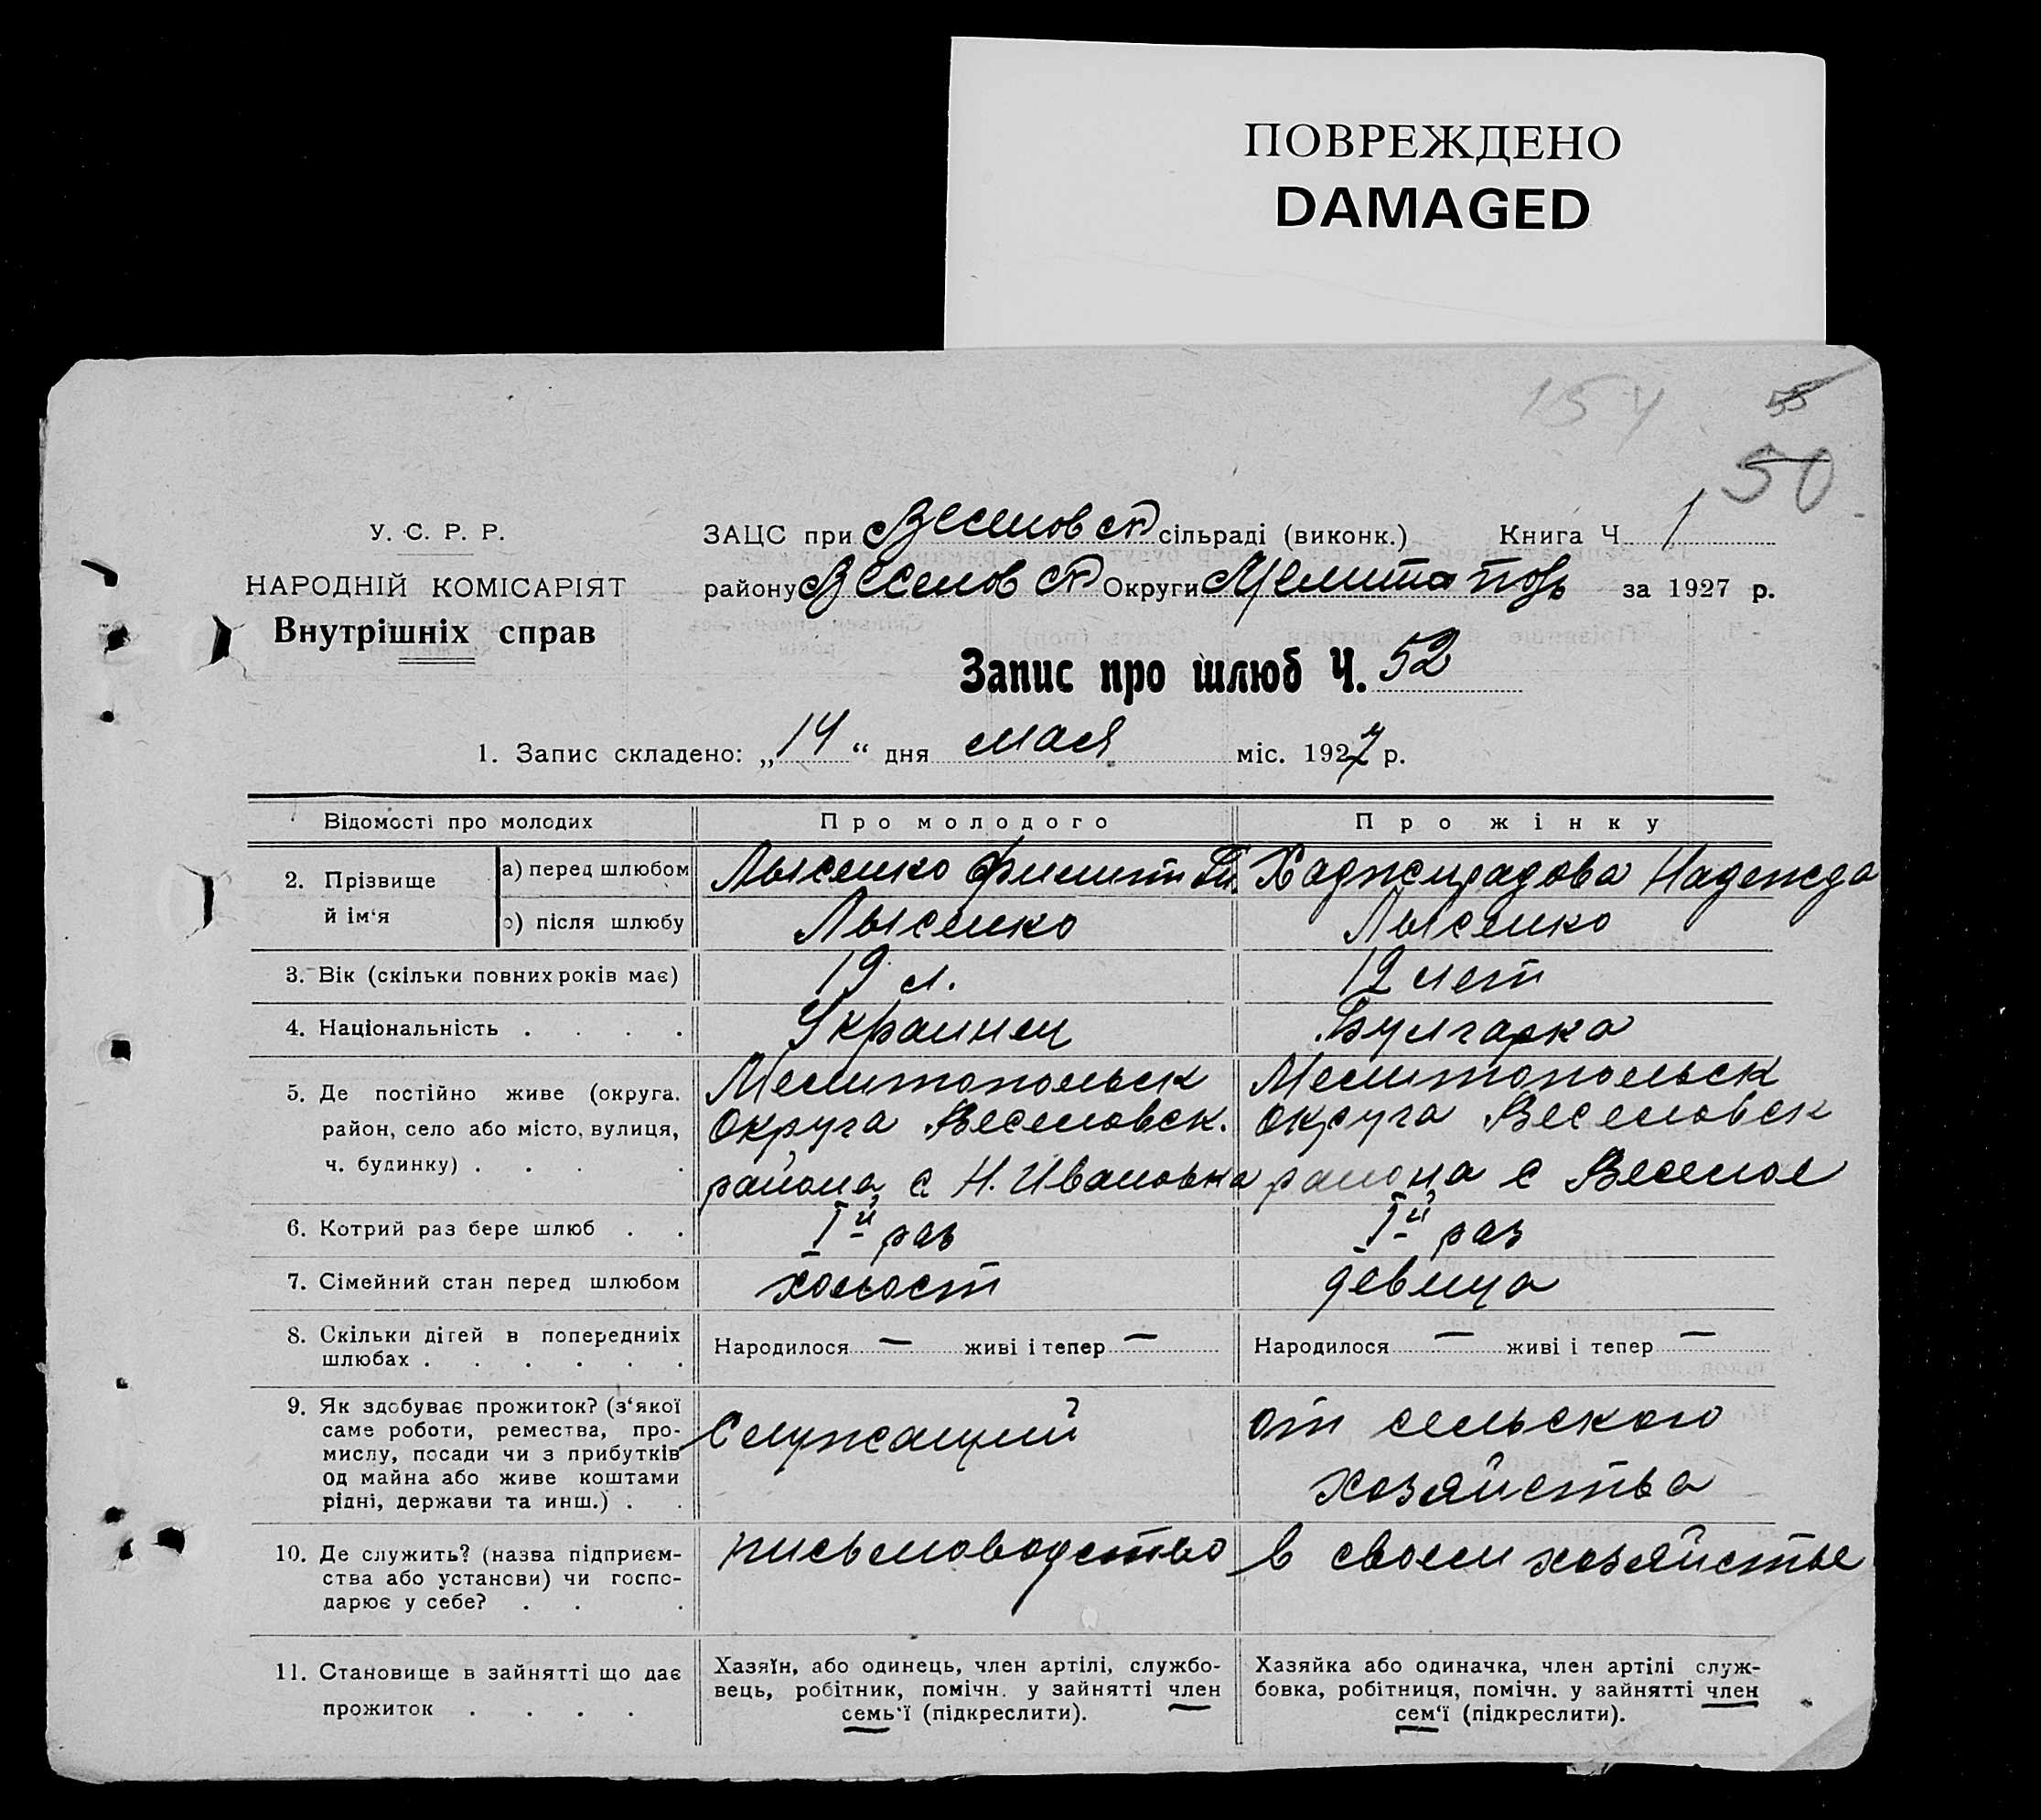 ПОВРЕЖДЕНО
DAMAGED
154 55
50
У. С. Р. Р.
НАРОДНІЙ КОМІСАРІЯТ
Внутрішніх справ
ЗАЦС при Веселовск сільраді (виконк.) Книга Ч 1
району Веселовск Округи Мелитопол за 1927 р.
Запис про шлюб Ч. 52
1. Запис складено: „14“ дня мая міс. 1927 р.
Відомості про молодих
Про молодого
Про жінку
2. Прізвище й ім‘я
а) перед шлюбом
Лысенко Филипп
Хаджирадова Надежда
б) після шлюбу
Лысенко
Лысенко
3. Вік (скільки повних років має)
19 л.
19 лет
4. Національність . . . .
Украинец
Булгарка
5. Де постійно живе (округа,
район, село або місто, вулиця,
ч. будинку) . . . .
Мелитопольск
округа Веселовск.
района с Н. Ивановка
Мелитопольск
округа Веселовск
района с Веселое
6. Котрий раз бере шлюб . .
Iй раз
Iй раз
7. Сімейний стан перед шлюбом
холост
девица
8. Скільки дітей в попередниіх
шлюбах . . . . . .
Народилося — живі і тепер —
Народилося — живі і тепер —
9. Як здобуває прожиток? (з‘якої
саме роботи, ремества, про-
мислу, посади чи з прибутків
од майна або живе коштами
рідні, держави та инш.) . .
Служащий
от сельского
хозяйства
10. Де служить? (назва підприєм-
ства або установи) чи госпо-
дарює у себе? . . .
письмоводство
в своем хозяйстве
11. Становище в зайнятті що дає
прожиток . . . .
Хазяїн, або одинець, член артілі, службо-
вець, робітник, помічн. у зайнятті член
семь‘ї (підкреслити).
Хазяйка або одиначка, член артілі служ-
бовка, робітниця, помічн. у зайнятті член
сем‘ї (підкреслити).